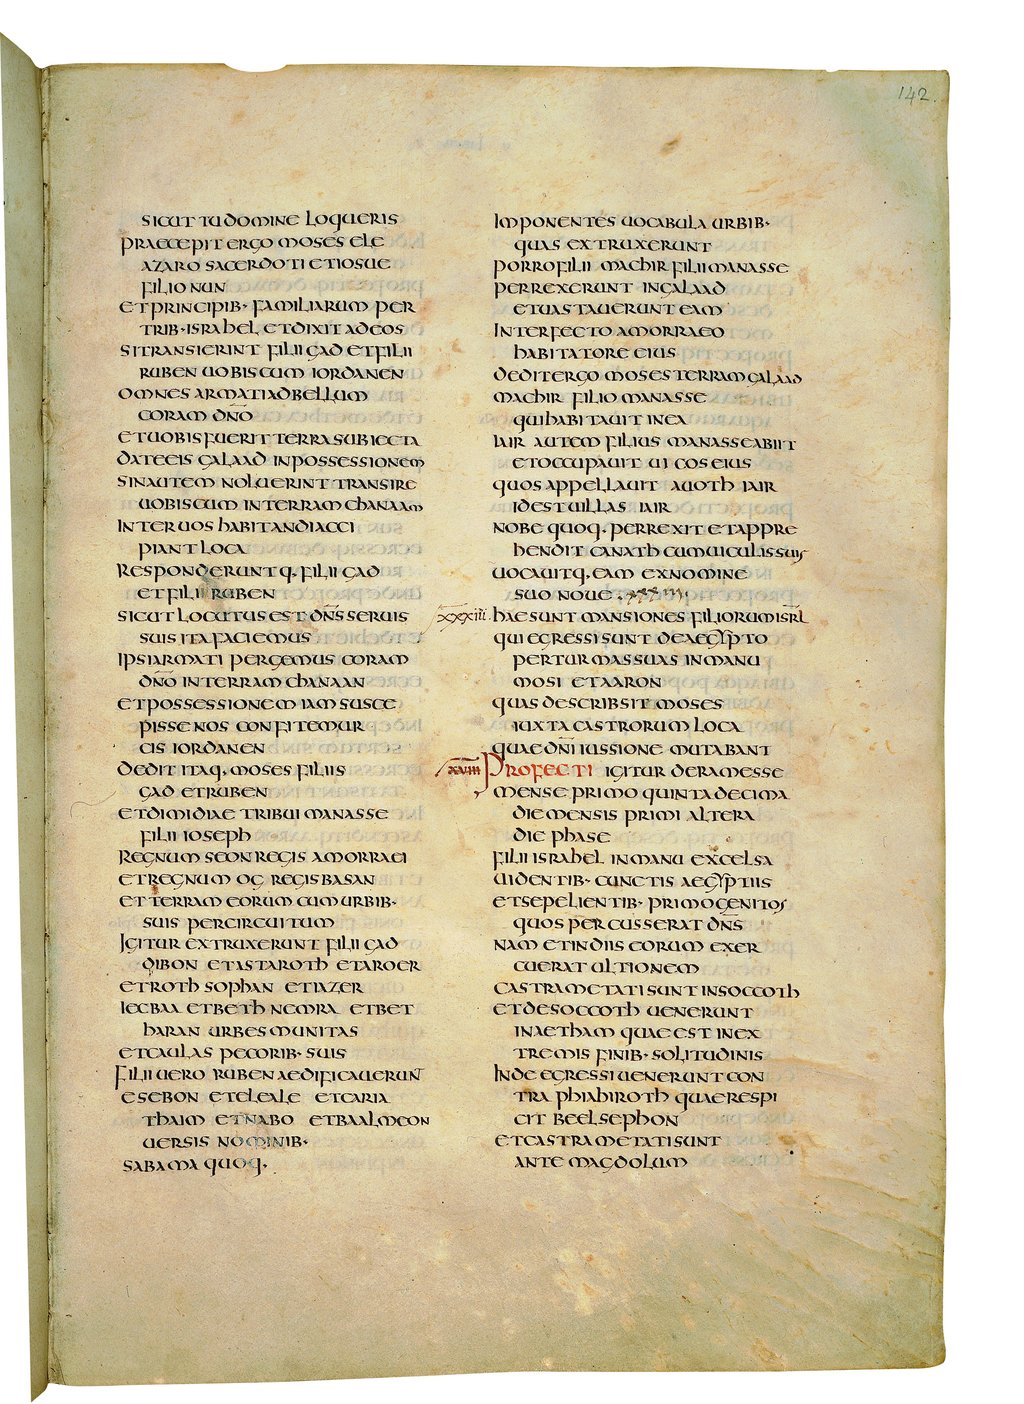 142.
SICUT TU DOMINE LOQUERIS
PRAECEPIT ERGO MOSES ELE
AZARO SACERDOTI ET IOSUE
FILIO NUN
ET PRINCIPIB· FAMILIARUM PER
TRIB· ISRAHEL ET DIXIT AD EOS
SI TRANSIERINT FILII GAD ET FILII
RUBEN UOBISCUM IORDANEN
OMNES ARMATI AD BELLUM
CORAM DN̅O̅
ET UOBIS FUERIT TERRA SUBIECTA
DATE EIS GALAAD IN POSSESSIONEM
SIN AUTEM NOLUERINT TRANSIRE
UOBISCUM IN TERRAM CHANAAN
INTER UOS HABITANDI ACCI
PIANT LOCA
RESPONDERUNTQ, FILII GAD
ET FILII RUBEN
SICUT LOCUTUS EST DN̅S̅ SERUIS
SUIS ITA FACIEMUS
IPSI ARMATI PERGEMUS CORAM
DN̅O̅ IN TERRAM CHANAAN
ET POSSESSIONEM IAM SUSCE
PISSE NOS CONFITEMUR
CIS IORDANEN
DEDIT ITAQ, MOSES FILIIS
GAD ET RUBEN
ET DIMIDIAE TRIBUI MANASSE
FILII IOSEPH
REGNUM SEON REGIS AMORRAEI
ET REGNUM OG REGIS BASAN
ET TERRAM EORUM CUM URBIB·
SUIS PER CIRCUITUM
IGITUR EXTRUXERUNT FILII GAD
DIBON ET ASTAROTH ET AROER
ET ROTH SOPHAN ET IAZER
IECBAA ET BETH NEMRA ET BET
HARAN URBES MUNITAS
ET CAULAS PECORIB· SUIS
FILII UERO RUBEN AEDIFICAUERUNT
ESEBON ET ELEALE ET CARIA
THAIM ET NABO ET BAALMEON
UERSIS NOMINIB·
SABAMA QUOQ,
IMPONENTES UOCABULA URBIB·
QUAS EXTRUXERUNT
PORRO FILII MACHIR FILII MANASSE
PERREXERUNT IN GALAAD
ET UASTAUERUNT EAM
INTERFECTO AMORRAEO
HABITATORE EIUS
DEDIT ERGO MOSES TERRAM GALAAD
MACHIR FILIO MANASSE
QUI HABITAUIT IN EA
IAIR AUTEM FILIUS MANASSE ABIIT
ET OCCUPAUIT UICOS EIUS
QUOS APPELLAUIT AUOTH IAIR
ID EST UILLAS IAIR
NOBE QUOQ, PERREXIT ET APPRE
HENDIT CANATH CUM UICULIS SUIS
UOCAUITQ, EAM EX NOMINE
SUO NOUE
XXXIII. HAE SUNT MANSIONES FILIORUM ISR̅L̅
QUI EGRESSI SUNT DE AEGYPTO
PER TURMAS SUAS IN MANU
MOSI ET AARON
QUAS DESCRIBSIT MOSES
IUXTA CASTRORUM LOCA
QUAE DN̅I̅ IUSSIONE MUTABANT
XXIII PROFECTI IGITUR DE RAMESSE
MENSE PRIMO QUINTA DECIMA
DIE MENSIS PRIMI ALTERA
DIE PHASE
FILII ISRAHEL IN MANU EXCELSA
UIDENTIB· CUNCTIS AEGYPTIIS
ET SEPELIENTIB· PRIMOGENITOS
QUOS PERCUSSERAT DN̅S̅
NAM ET IN DIIS EORUM EXER
CUERAT ULTIONEM
CASTRAMETATI SUNT IN SOCCOTH
ET DE SOCCOTH UENERUNT
IN AETHAM QUAE EST IN EX
TREMIS FINIB· SOLITUDINIS
INDE EGRESSI UENERUNT CON
TRA PHIAHIROTH QUAE RESPI
CIT BEELSEPHON
ET CASTRAMETATI SUNT
ANTE MAGDOLUM